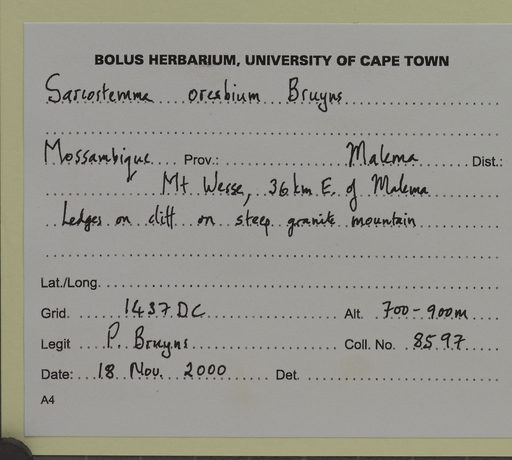 BOLUS HERBARIUM, UNIVERSITY OF CAPE TOWN
Sarcostemma oresbium Bruyns
Mossambique Prov.: Malema Dist.:
Mt Wesse, 36 km E. of Malema
Ledges on cliff on steep granite mountain
Lat./Long.
Grid. 1437 DC Alt. 700-900m
Legit P. Bruyns Coll. No. 8597
Date: 18 Nov. 2000 Det.
A4